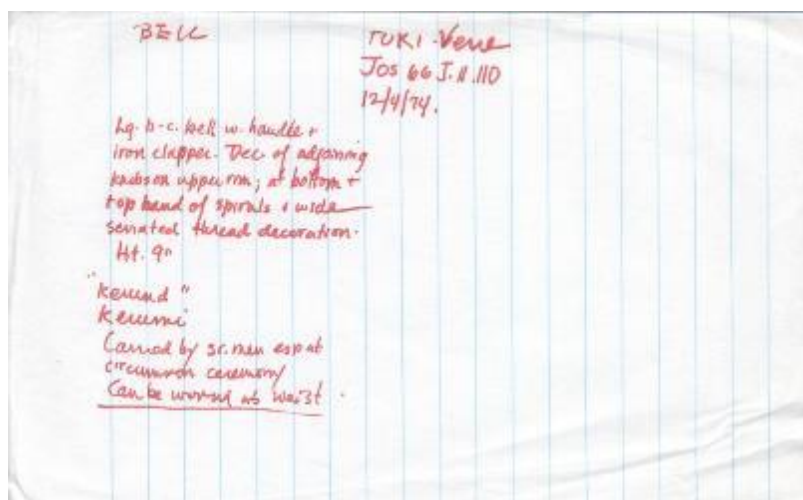 BELL
TUKI-Vere
Jos 66 J.11.110
12/4/74.
Lg. b-c. bell w. handle +
iron clapper. Dec of adjoining
knobs on upper rm; at bottom +
top band of spirals + wide
serrated thread decoration.
Ht. 9"
"Kerund"
Kerumi
Carried by sr. men esp at
circumcision ceremony
Can be worned at waist.